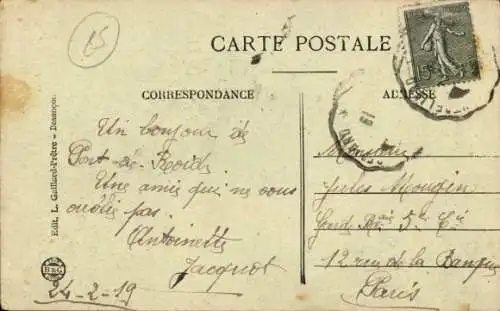 15
CARTE POSTALE
CORRESPONDANCE
ADRESSE
Un bonjour de
Port-de-Roide
Une amie qui ne vous
oublie pas.
Antoinette
Jacquot
24-2-19
Monsieur
Jules Mougin
5e Cie
12 rue de la Banque
Paris
Edit. L. Gaillard-Prêtre - Besançon.
B&G
15c